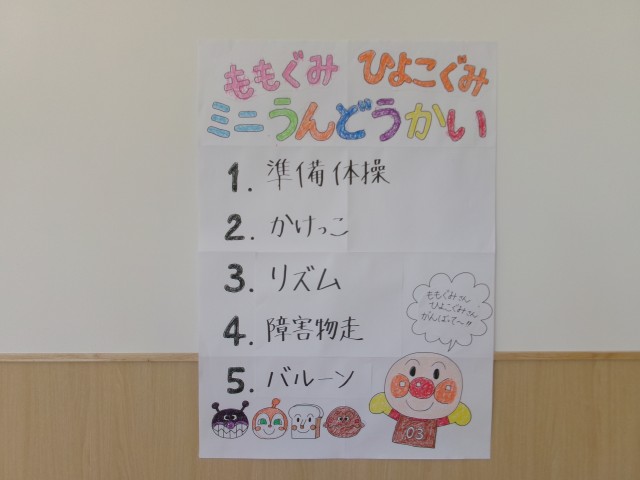 ももぐみ ひよこぐみ
ミニうんどうかい
1. 準備体操
2. かけっこ
3. リズム
4. 障害物走
5. バルーン
ももぐみさん
ひよこぐみさん
がんばって〜!!
03